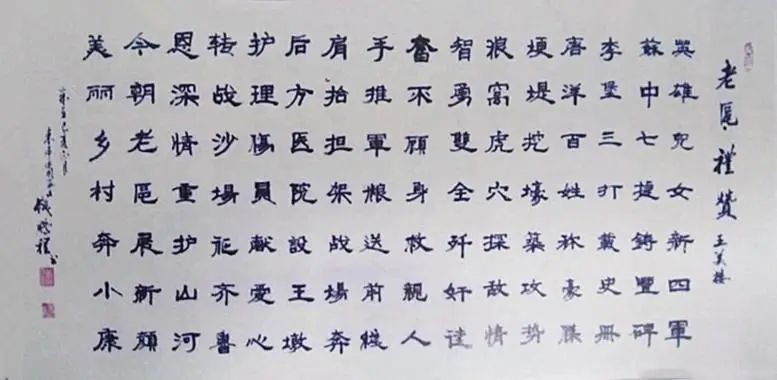 老區禮贊
王美樓
英雄兒女新四軍
蘇中七捷鑄豐碑
李堡三打載史冊
唐洋百姓称豪
埂堤挖壕築攻势
浪窩虎穴探敌情
智勇雙全歼奸
奮不顧身救親人
手推軍粮送前綫
肩抬担架战場奔
后方医院設王墩
护理傷員献愛心
转战沙場祀齐魯
恩深情重护山河
今朝老區展新顏
美丽乡村奔小康
己亥六月